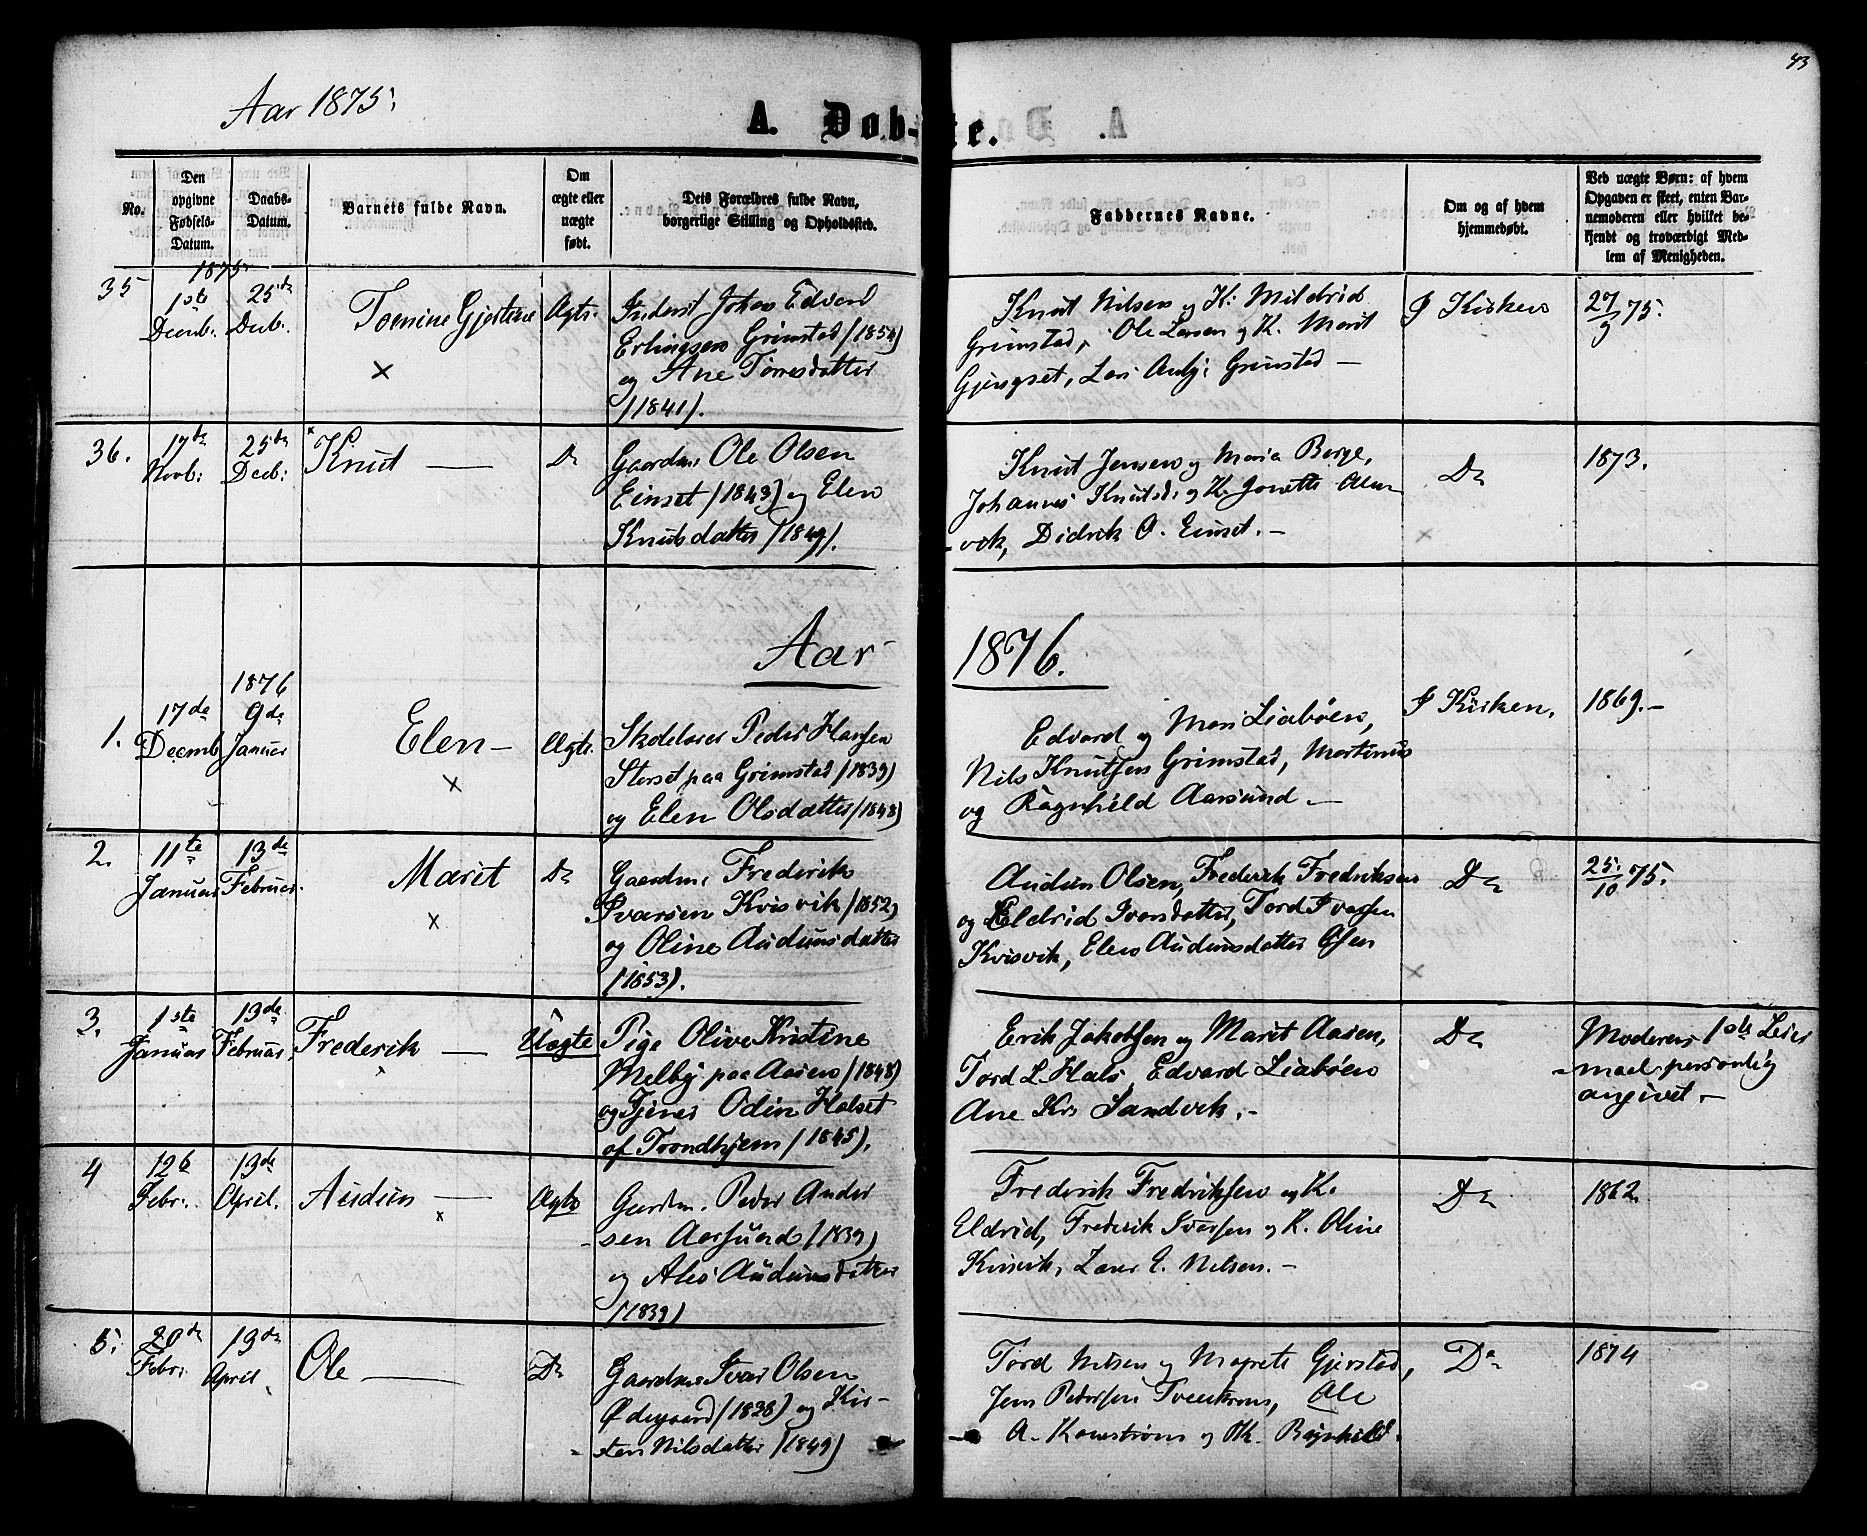 43
Aar 1875.
A. Døb-te.
No.
Den opgivne Fødsels-Datum.
Daabs-Datum.
Barnets fulde Navn.
Om ægte eller uægte født.
Dets Forældres fulde Navn, borgerlige Stilling og Opholdssted.
Faddernes Navne.
Om og af hvem hjemmedøbt.
Ved uægte Børn: af hvem
Opgaven er skeet, enten Bar-
nemoderen eller hvilket be-
kjendt og troværdigt Med-
lem af Menigheden.
1875
35
1ste Decmb.
25de Decb.
Gjertine
Ægte
Inderst Johan Edvard
Erlingsen Grimstad (1854)
og Ane Torresdatter
(1841).
Knut Nilsen og K. Mildrid
Grimstad, Ole Larsen og K. Marit
Gjengset, Lars Grimstad —
I Kirken
27/9 75.
36.
17de Novb:
25de Decb:
Knut —
Do
Gaardm. Ole Olsen
Einset (1843) og Elen
Knutsdatter (1849).
Knut Jensen og Maria Berge,
Johannes Knuts. og K. Jonette Alm-
-vik, Didrik O. Einset. -
Do
1873.
Aar 1876.
1.
17de Decemb
1876
9de Januar
Elen —
Ægte.
Skolelærer Peder Hansen
Storset paa Grimstad (1839)
og Elen Olsdatter (1848)
Edvard og Mari Liabøen,
Nils Knutsen Grimstad, Martinus
og Ragnhild Aarsund. —
I Kirken.
1869. —
2.
11te Januar
13de Februar.
Marit
Do
Gaardm. Frederik
Ivarsen Kvisvik (1852)
og Oline Audunsdatter
(1853).
Audun Olsen, Frederik Fredriksen
og Eldrid Ivarsdatter, Tord Ivarsen
Kvisvik, Elen Audunsdatter Øsen
Do
25/10 75.
3.
1ste Januar
13de Februar
Frederik —
Uægte
Pige Olive Kristine
Melby paa Aasen (1848)
og Tjener Odin Halset
af Trondhjem (1845).
Erik Jakobsen og Marit Aasen,
Tord L. Hals, Edvard Liabøen
Ane Kr. Sandvik. -
Do
Moderens 1ste Leier
-maal personlig
angivet. —
4
12te Febr.
13de April.
Audun —
Ægte
Gaardm. Peder Ander
-sen Aarsund (1839)
og Ales Audunsdatter
(1839)
Frederik Fredriksen og K.
Eldrid, Frederik Ivarsen og K. Oline
Kvisvik, Lars E. Nilsen. —
Do
1862
5.
29de Febr.
13de April
Ole —
Do
Gaardm. Ivar Olsen
Ødegaard (1838) og Kir-
-sten Nilsdatter (1849)
Tord Nilsen og Magrete Gjerstad,
Jens Pedersen Ole
A. og K. Ragnhild.
Do
1874